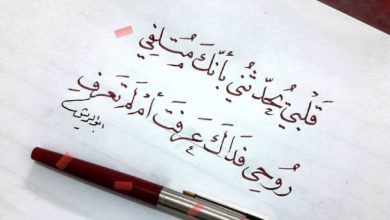 قَلْبِي يُحَدِّثُنِي بِأَنَّكَ مُتْلِفِي
رُوحِي فِدَاكَ عَرَفْتَ أَمْ لَمْ تَعْرِفِ